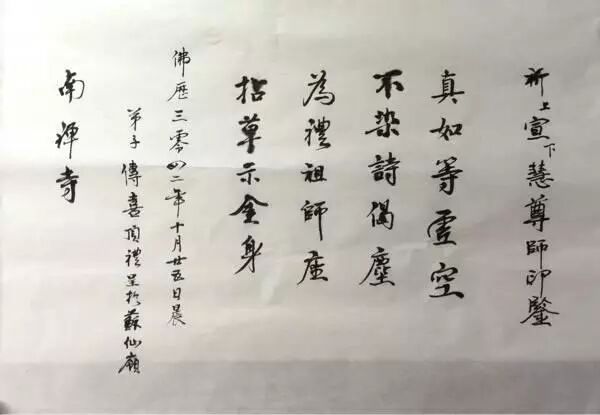 祈上宣下慧尊師印鑒
真如等虛空
不染詩偈塵
為禮祖師座
拈草示全身
佛歷三零四二年十月廿五日晨
弟子傳喜頂禮呈於蘇仙嶺
南禪寺